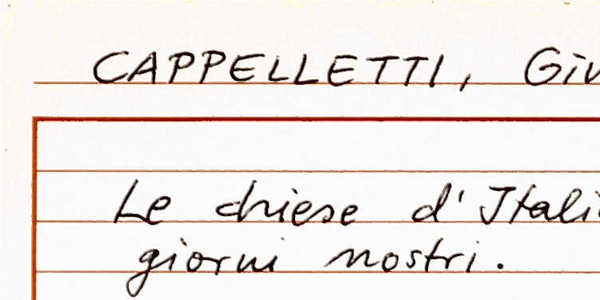 CAPPELLETTI, Giu
Le chiese d'Itali
giorni nostri.